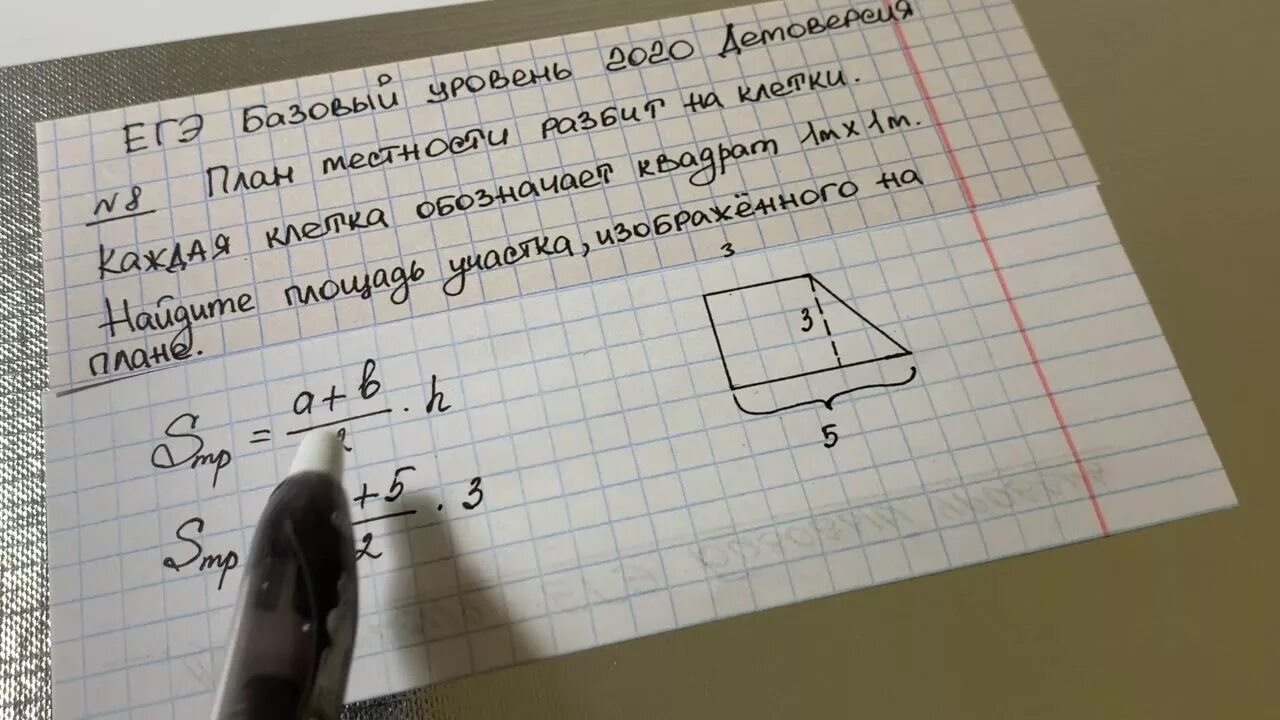 ЕГЭ Базовый уровень 2020 Демоверсия
№8 План местности разбит на клетки.
Каждая клетка обозначает квадрат 1м х 1м.
Найдите площадь участка, изображённого на
плане.
3
3
5
Sтр = a + b / 2 · h
Sтр + 5 / 2 · 3